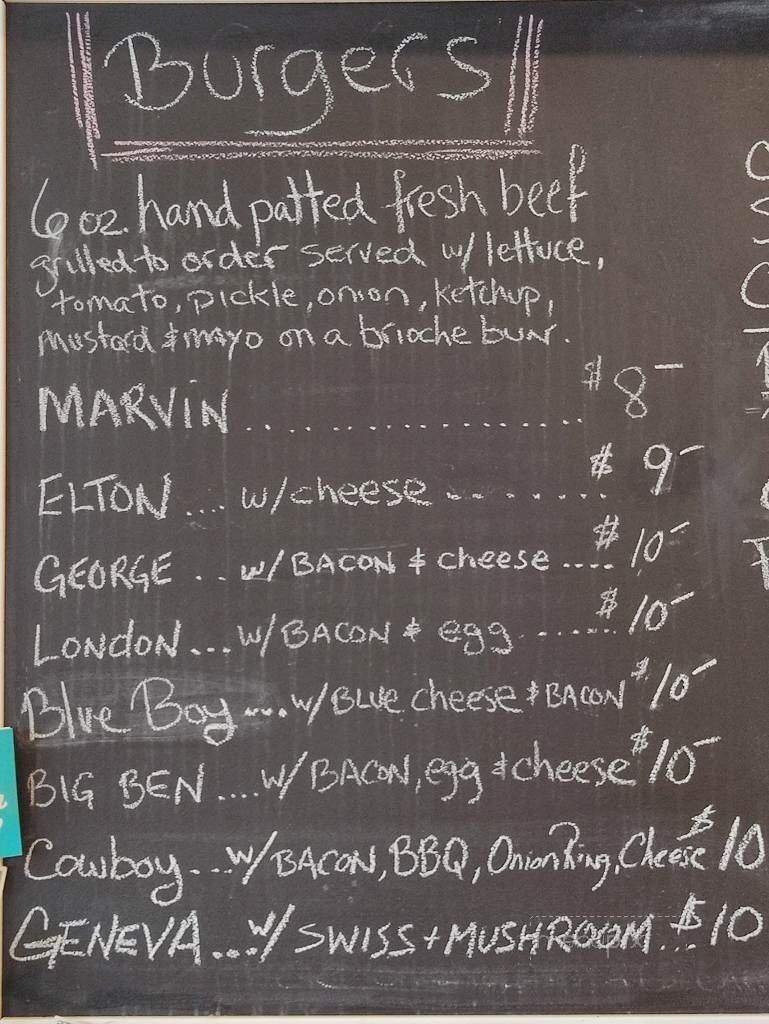 Burgers
6 oz. hand patted fresh beef
grilled to order served w/ lettuce,
tomato, pickle, onion, ketchup,
mustard & mayo on a brioche bun.
MARVIN .................. $8-
ELTON .... w/cheese ........ $9-
GEORGE ... w/ BACON & cheese .... $10-
LONDON ... w/BACON & egg ....... $10-
Blue Boy .... w/BLUE cheese & BACON $10-
BIG BEN .... w/ BACON, egg & cheese $10-
Cowboy ... w/ BACON, BBQ, Onion Ring, Cheese $10
GENEVA ... w/ SWISS + MUSHROOM ... $10